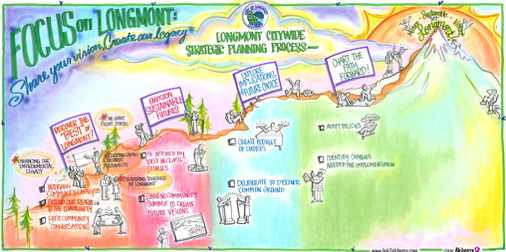 FOCUS on LONGMONT:
Share your vision, Create our Legacy
LONGMONT CITYWIDE
STRATEGIC PLANNING PROCESS
DISCOVER THE
"BEST" of
LONGMONT!
ENVISION
SUSTAINABLE
FUTURES
EXPLORE
IMPLICATIONS
& FUTURE CHOICE
CHART THE
PATH
FORWARD!
Sustainable
Longmont
ENHANCING OUR
ENVIRONMENTAL
LEGACY
INTERVIEW
COMMUNITY
EXTEND OUR REACH
TO THE COMMUNITY
HOST COMMUNITY
CONVERSATIONS
BE INSPIRED BY
BEST IN CLASS
STORIES
COMMUNITY
SUMMIT TO CREATE
FUTURE VISIONS
CREATE BOOKLET
OF CHOICES
DELIBERATE TO DISCOVER
COMMON GROUND
ADOPT POLICIES
IDENTIFY CHANGES
NEEDED FOR IMPLEMENTATION